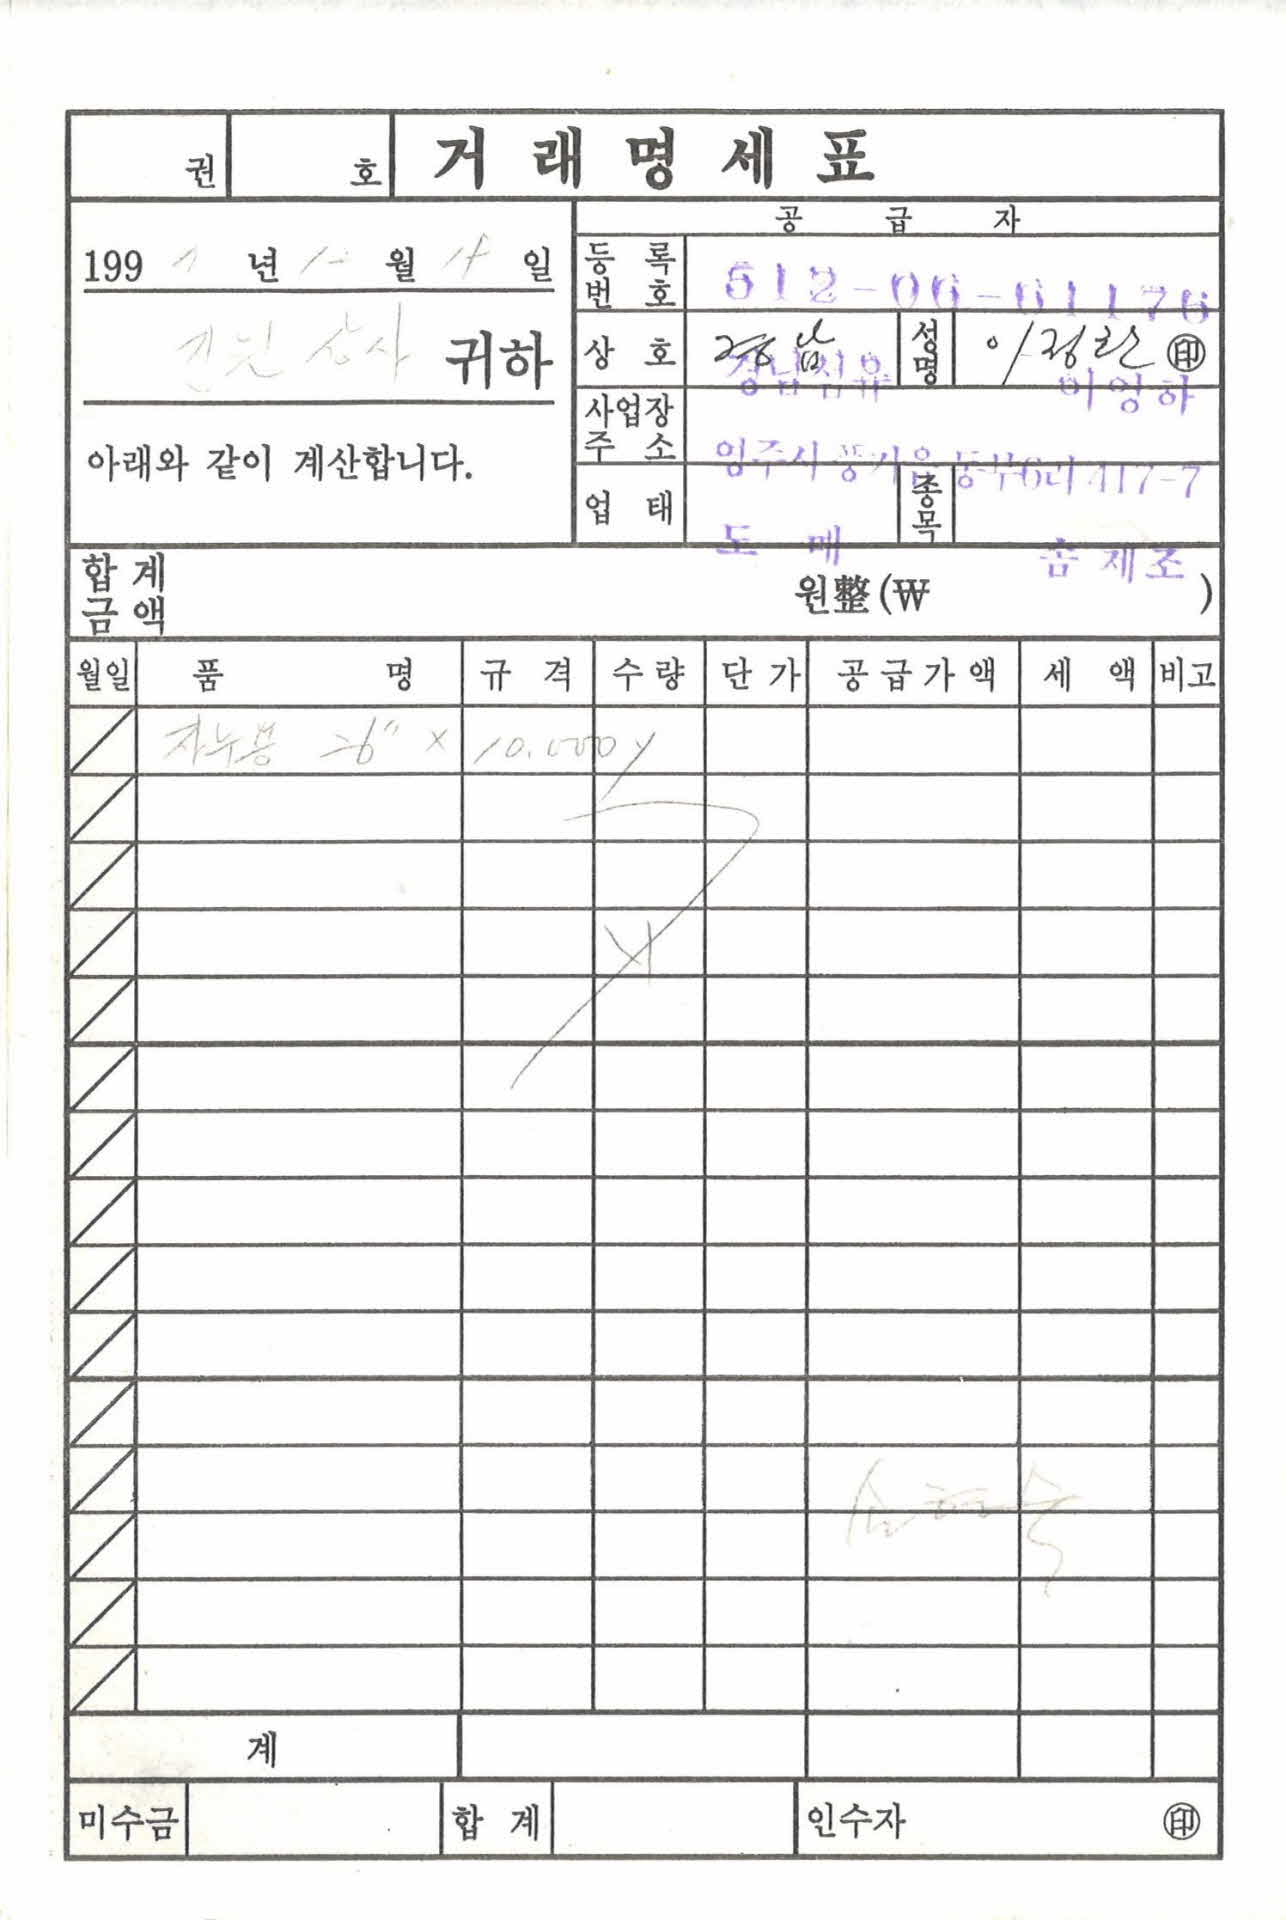 권 호 거래명세표
공급자
199 년 월 일
등록번호 512-06-61176
상사 귀하
상호 경남 경남섬유 성명 이정란 ㊞ 이영하
사업장주소 영주시 풍기읍 동부6리 417-7
아래와 같이 계산합니다.
업태 도매 종목 제조
합계금액 원整(₩ )
월일 품명 규격 수량 단가 공급가액 세액 비고
36" × 10.000y
계
미수금 합계 인수자 ㊞